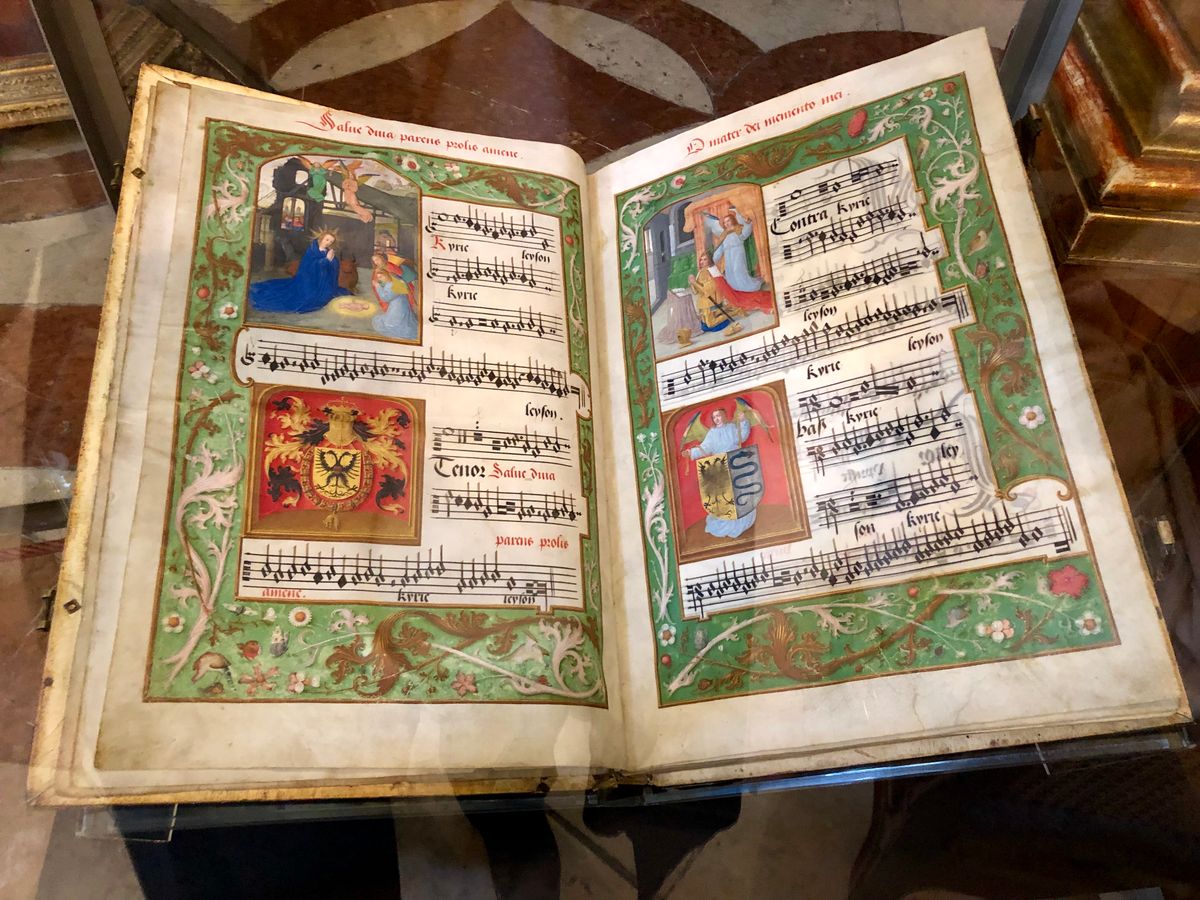 Salue diua parens prolis amene.
Kyrie
leyson
kyrie
leyson.
Tenor Salue diua
parens prolis
amene. kyrie leyson
O mater dei memento mei.
Contra kyrie
leyson
leyson
kyrie
baſſ kyrie
ley
son kyrie